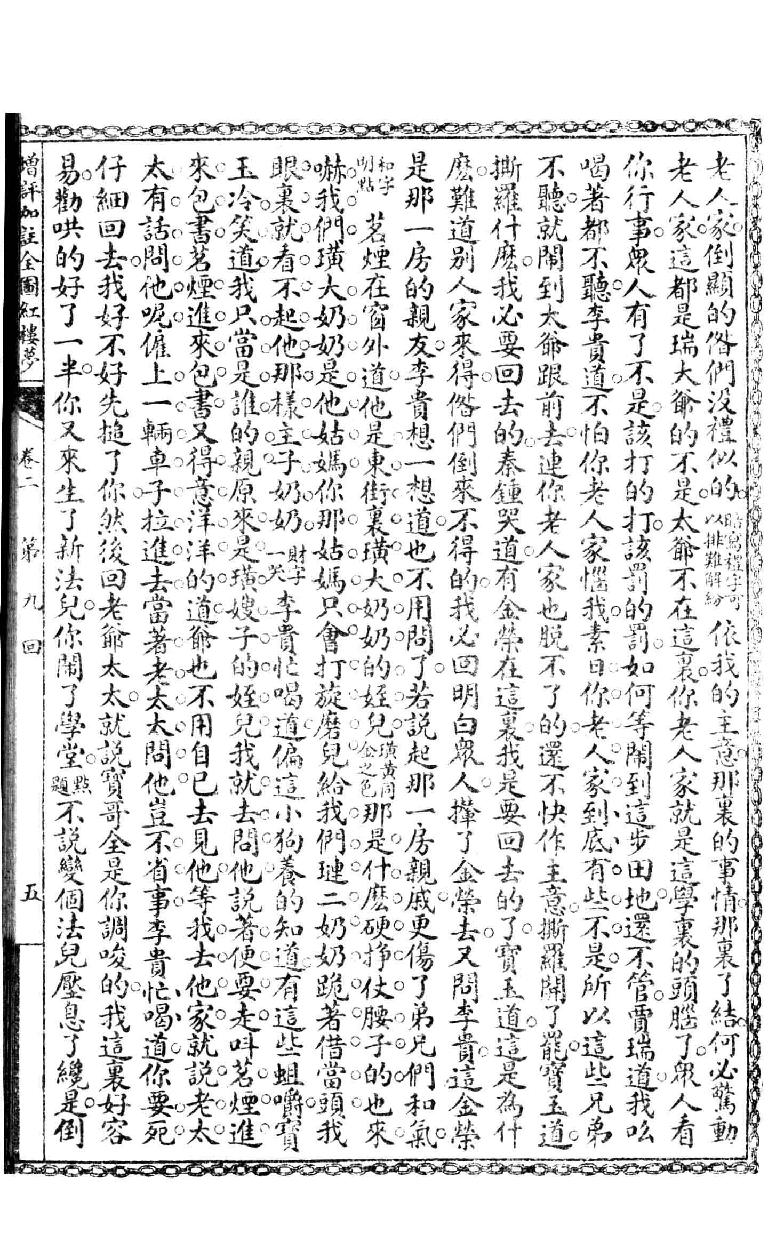 老人家倒顯的偺們沒禮似的暗寫禮字可以排難解紛依我的主意那裏的事情那裏了結何必驚動
老人家這都是瑞大爺的不是太爺不在這裏你老人家就是這學裏的頭腦了衆人看
你行事衆人有了不是該打的打該罰的罰如何等鬧到這步田地還不管賈瑞道我吆
喝著都不聽李貴道不怕你老人家惱我素日你老人家到底有些不是所以這些兄弟
不聽就鬧到太爺跟前去連你老人家也脫不了的還不快作主意撕羅開了罷寶玉道
撕羅什麽我必要回去的秦鍾哭道有金榮在這裏我是要回去的了寶玉道這是為什
麽難道別人家來得偺們倒來不得的我必回明白衆人攆了金榮去又問李貴這金榮
是那一房的親友李貴想一想道也不用問了若說起那一房親戚更傷了弟兄們和氣
和字明點茗煙在窗外道他是東街裏璜大奶奶的姪兒璜黃同金之色那是什麽硬掙仗腰子的也來
嚇我們璜大奶奶是他姑媽你那姑媽只會打旋磨兒給我們璉二奶奶跪著借當頭我
眼裏就看不起他那樣主子奶奶財字一哭李貴忙喝道偏這小狗養的知道有這些蛆嚼寶
玉冷笑道我只當是誰的親原來是璜嫂子的姪兒我就去問他說著便要走叫茗煙進
來包書茗煙進來包書又得意洋洋的道爺也不用自已去見他等我去他家就說老太
太有話問他呢僱上一輛車子拉進去當著老太太問他豈不省事李貴忙喝道你要死
仔細回去我好不好先搥了你然後回老爺太太就說寶哥全是你調唆的我這裏好容
易勸哄的好了一半你又來生了新法兒你鬧了學堂點題不說變個法兒壓息了纔是倒
增評加註全圖紅樓夢 卷二 第九回 五